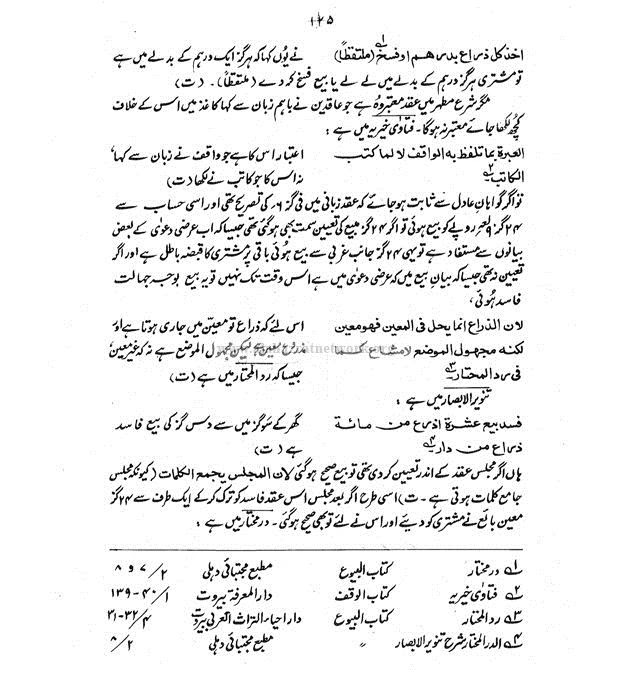 ۱۲۵
اخذ کل ذراع بدرھم او فسخ ۱؎ (ملتقطًا) نے یُوں کہا کہ ہر گز ایک درہم کے بدلے میں ہے
تو مشتری ہر گز درہم کے بدلے میں لے لے یا بیع فسخ کردے (ملتقطًا)۔ (ت)
مگر شرع مطہر میں عقد معتبر وہ ہے جو عاقدین نے باہم زبان سے کہا کاغذ میں اس کے خلاف
کچھ لکھا جائے معتبر نہ ہوگا۔ فتاوٰی خیریہ میں ہے :
العبرۃ بما تلفظ بہ الواقف لا لما کتب اعتبار اس کا ہے جو واقف نے زبان سے کہا،
الکاتب ۲؎ نہ اس کا جو کاتب نے لکھا (ت)
تو اگر گواہان عادل سے ثابت ہوجائے کہ عقد زبانی میں فی گز ۶؍ کی تصریح تھی اور اسی حساب سے
۲۴ گز روپے کو بیع ہوئی تو اگر ۲۴ گز مبیع کی تعیین سمت بھی ہوگئی تھی جیسا کہ اب عرضی دعوٰی کے بعض
بیانوں سے مستفاد ہے تو یہی ۲۴ گز جانب غربی سے بیع ہُوئی باقی پر مشتری کا قبضہ باطل ہے اور اگر
تعیین نہ تھی جیسا کہ بیان بیع میں کہ عرضی دعوٰی میں ہے اس وقت تک نہیں تو یہ بیع بوجہ جہالت
فاسد ہُوئی،
لان الذراع انما یحل فی المعین فھو معین اس لئے کہ ذراع تو معیّن میں جاری ہوتا ہے اور
لکنہ مجھول الموضع لا مشاع کما مذروع معین ہے لیکن مجہول الموضع ہے نہ کہ غیر معین،
فی رد المحتار ۳؎ جیسا کہ رد المحتار میں ہے (ت)
تنویر الابصار میں ہے :
فسد بیع عشرۃ اذرع من مائۃ گھر کے سَو گز میں سے دس گز کی بیع فاسد
ذراع من دار ۴؎ ہے (ت)
ہاں اگر مجلس عقد کے اندر تعیین کردی تھی تو بیع صحیح ہوگئی لان المجلس یجمع الکلمات (کیونکہ مجلس
جامع کلمات ہوتی ہے ۔ت) اسی طرح اگر بعد مجلس اس عقد فاسد کو ترک کرکے ایک طرف سے ۲۴ گز
معین بائع نے مشتری کو دیئے اور اس نے لئے تو بھی صحیح ہوگئی۔ درمختار میں ہے :
۱؎ درمختار کتاب البیوع مطبع مجتبائی دہلی ۲/ ۷ و ۸
۲؎ فتاوٰی خیریہ کتاب الوقف دار المعرفۃ بیروت ۱/ ۴۰-۱۳۹
۳؎ رد المحتار کتاب البیوع دار احیاء التراث العربی بیروت ۴/ ۳۲-۳۱
۴؎ الدر المختار شرح تنویر الابصار 〃 مطبع مجتبائی دہلی ۲/ ۸